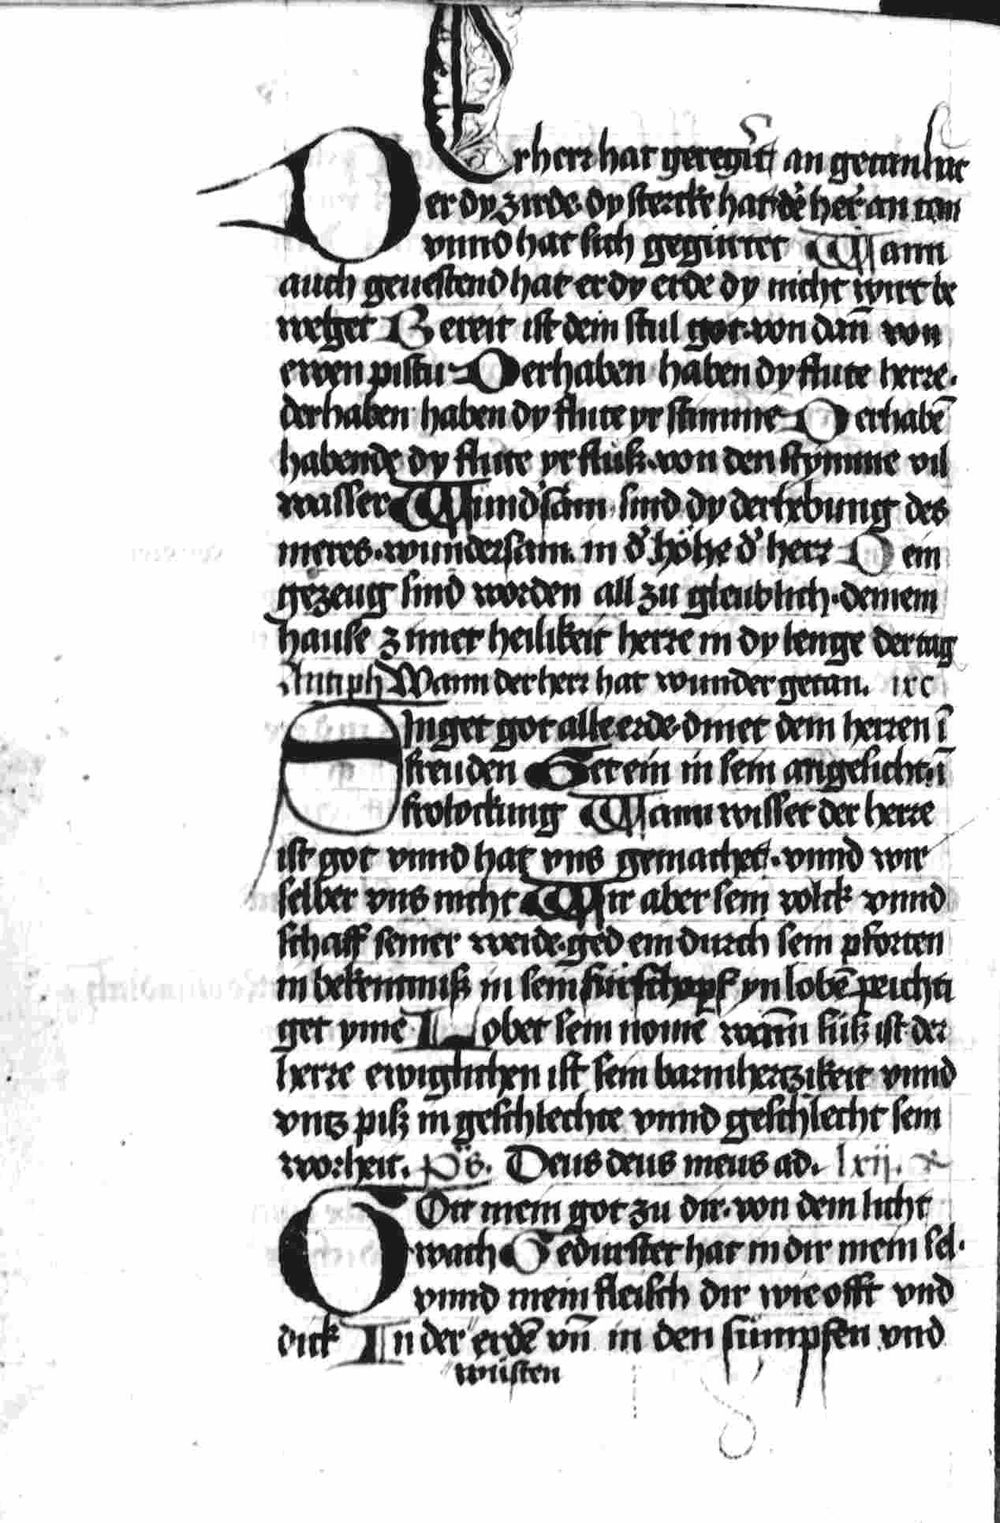 Er herr hat geregū̄t an getan hat
Der dy zirde dy stercke hat d' her an tan
vnnd hat sich gegürtet Wann
auch geuestend hat er dy erde dy nicht wirt be
weget Bereit ist dein stul got von dan̄ von
ewen pistu Derhaben haben dy flute herre
derhaben haben dy flute yr stimme Derhabē
habende dy flute yr fluß von den stymme vil
wasser Wund'sam sind dy derhebung des
meres wundersam in d' höhe d' herr Dein
gezeug sind worden all zu gleublich deinem
hause zimet heilikeit herre in dy lenge der tag
Antiph Wann der herr hat wunder getan. ixc
Singet got alle erde dinet dem herren ī
freuden Get ein in sein angesicht ī
frolockung Wann wisset der herre
ist got vnnd hat vns gemachet vnnd wir
selber vns nicht Wir aber sein volck vnnd
schaff seiner weide ged ein durch sein pforten
in bekentniß in sein fürschopf yn lobē peichti
get yme Lobet sein nome wann süß ist der
herre ewiglichen ist sein barmhertzikeit vnnd
vntz piß in geschlechte vnnd geschlecht sein
worheit. Ps. Deus deus meus ad. lxii.
Gott mein got zu dir von dem licht
wach Gedurstet hat in dir mein sel
vnnd mein fleisch dir wie offt vnd
dick In der erdē vn̄ in den sümpfen vnd
wüsten